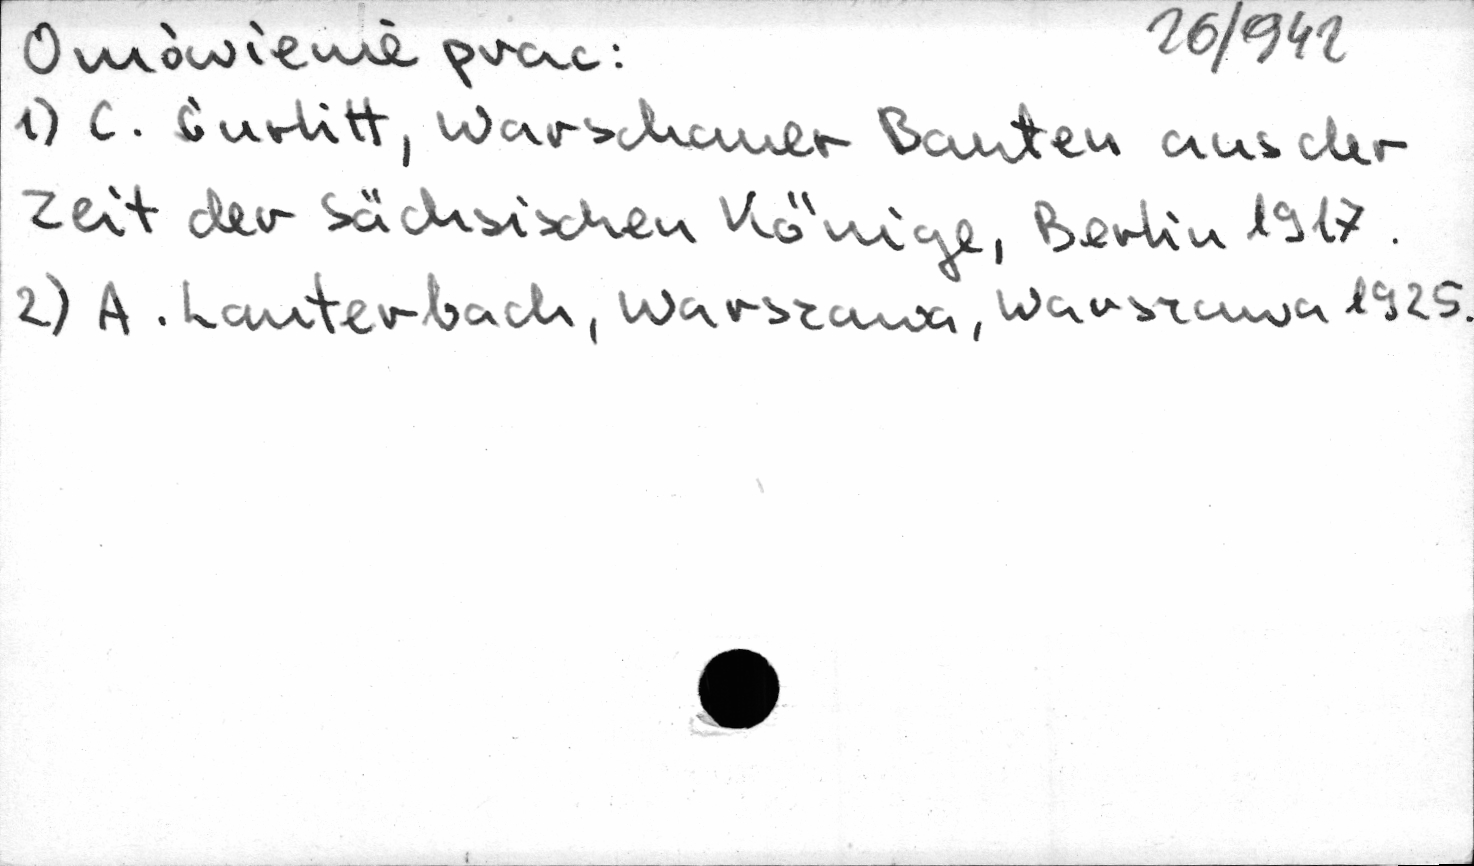 Omówienie prac: 26/942
1) C. Gurlitt, Warschauer Bauten aus der
Zeit der Sächsischen Könige, Berlin 1917.
2) A. Lauterbach, Warszawa, Warszawa 1925.